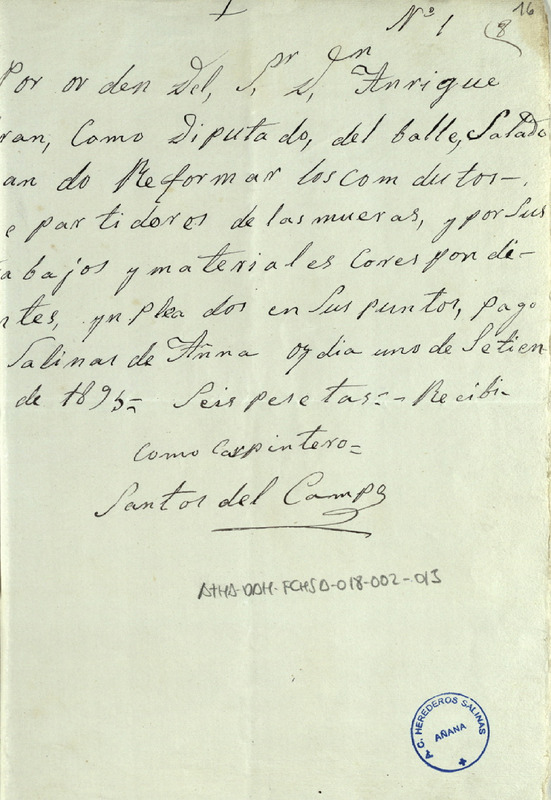 16
Nº 1
8
Por or den Del, Sr D,n Anrique
ran, Como Diputado, del balle, Salado
an do Reformar los com dutos-.
e partidores de las mueras, y por Sus
abajos y materiales Corespon di-
ntes, ynplea dos en Sus puntos, pago
Salinas de Añna oy dia uno de Setien
de 1895= Seis pesetas=- Recibi-
Como Carpintero=
Santos del Campo
ATHA-DAH-FCHSA-018-002-013
A.C. HEREDEROS SALINAS
AÑANA